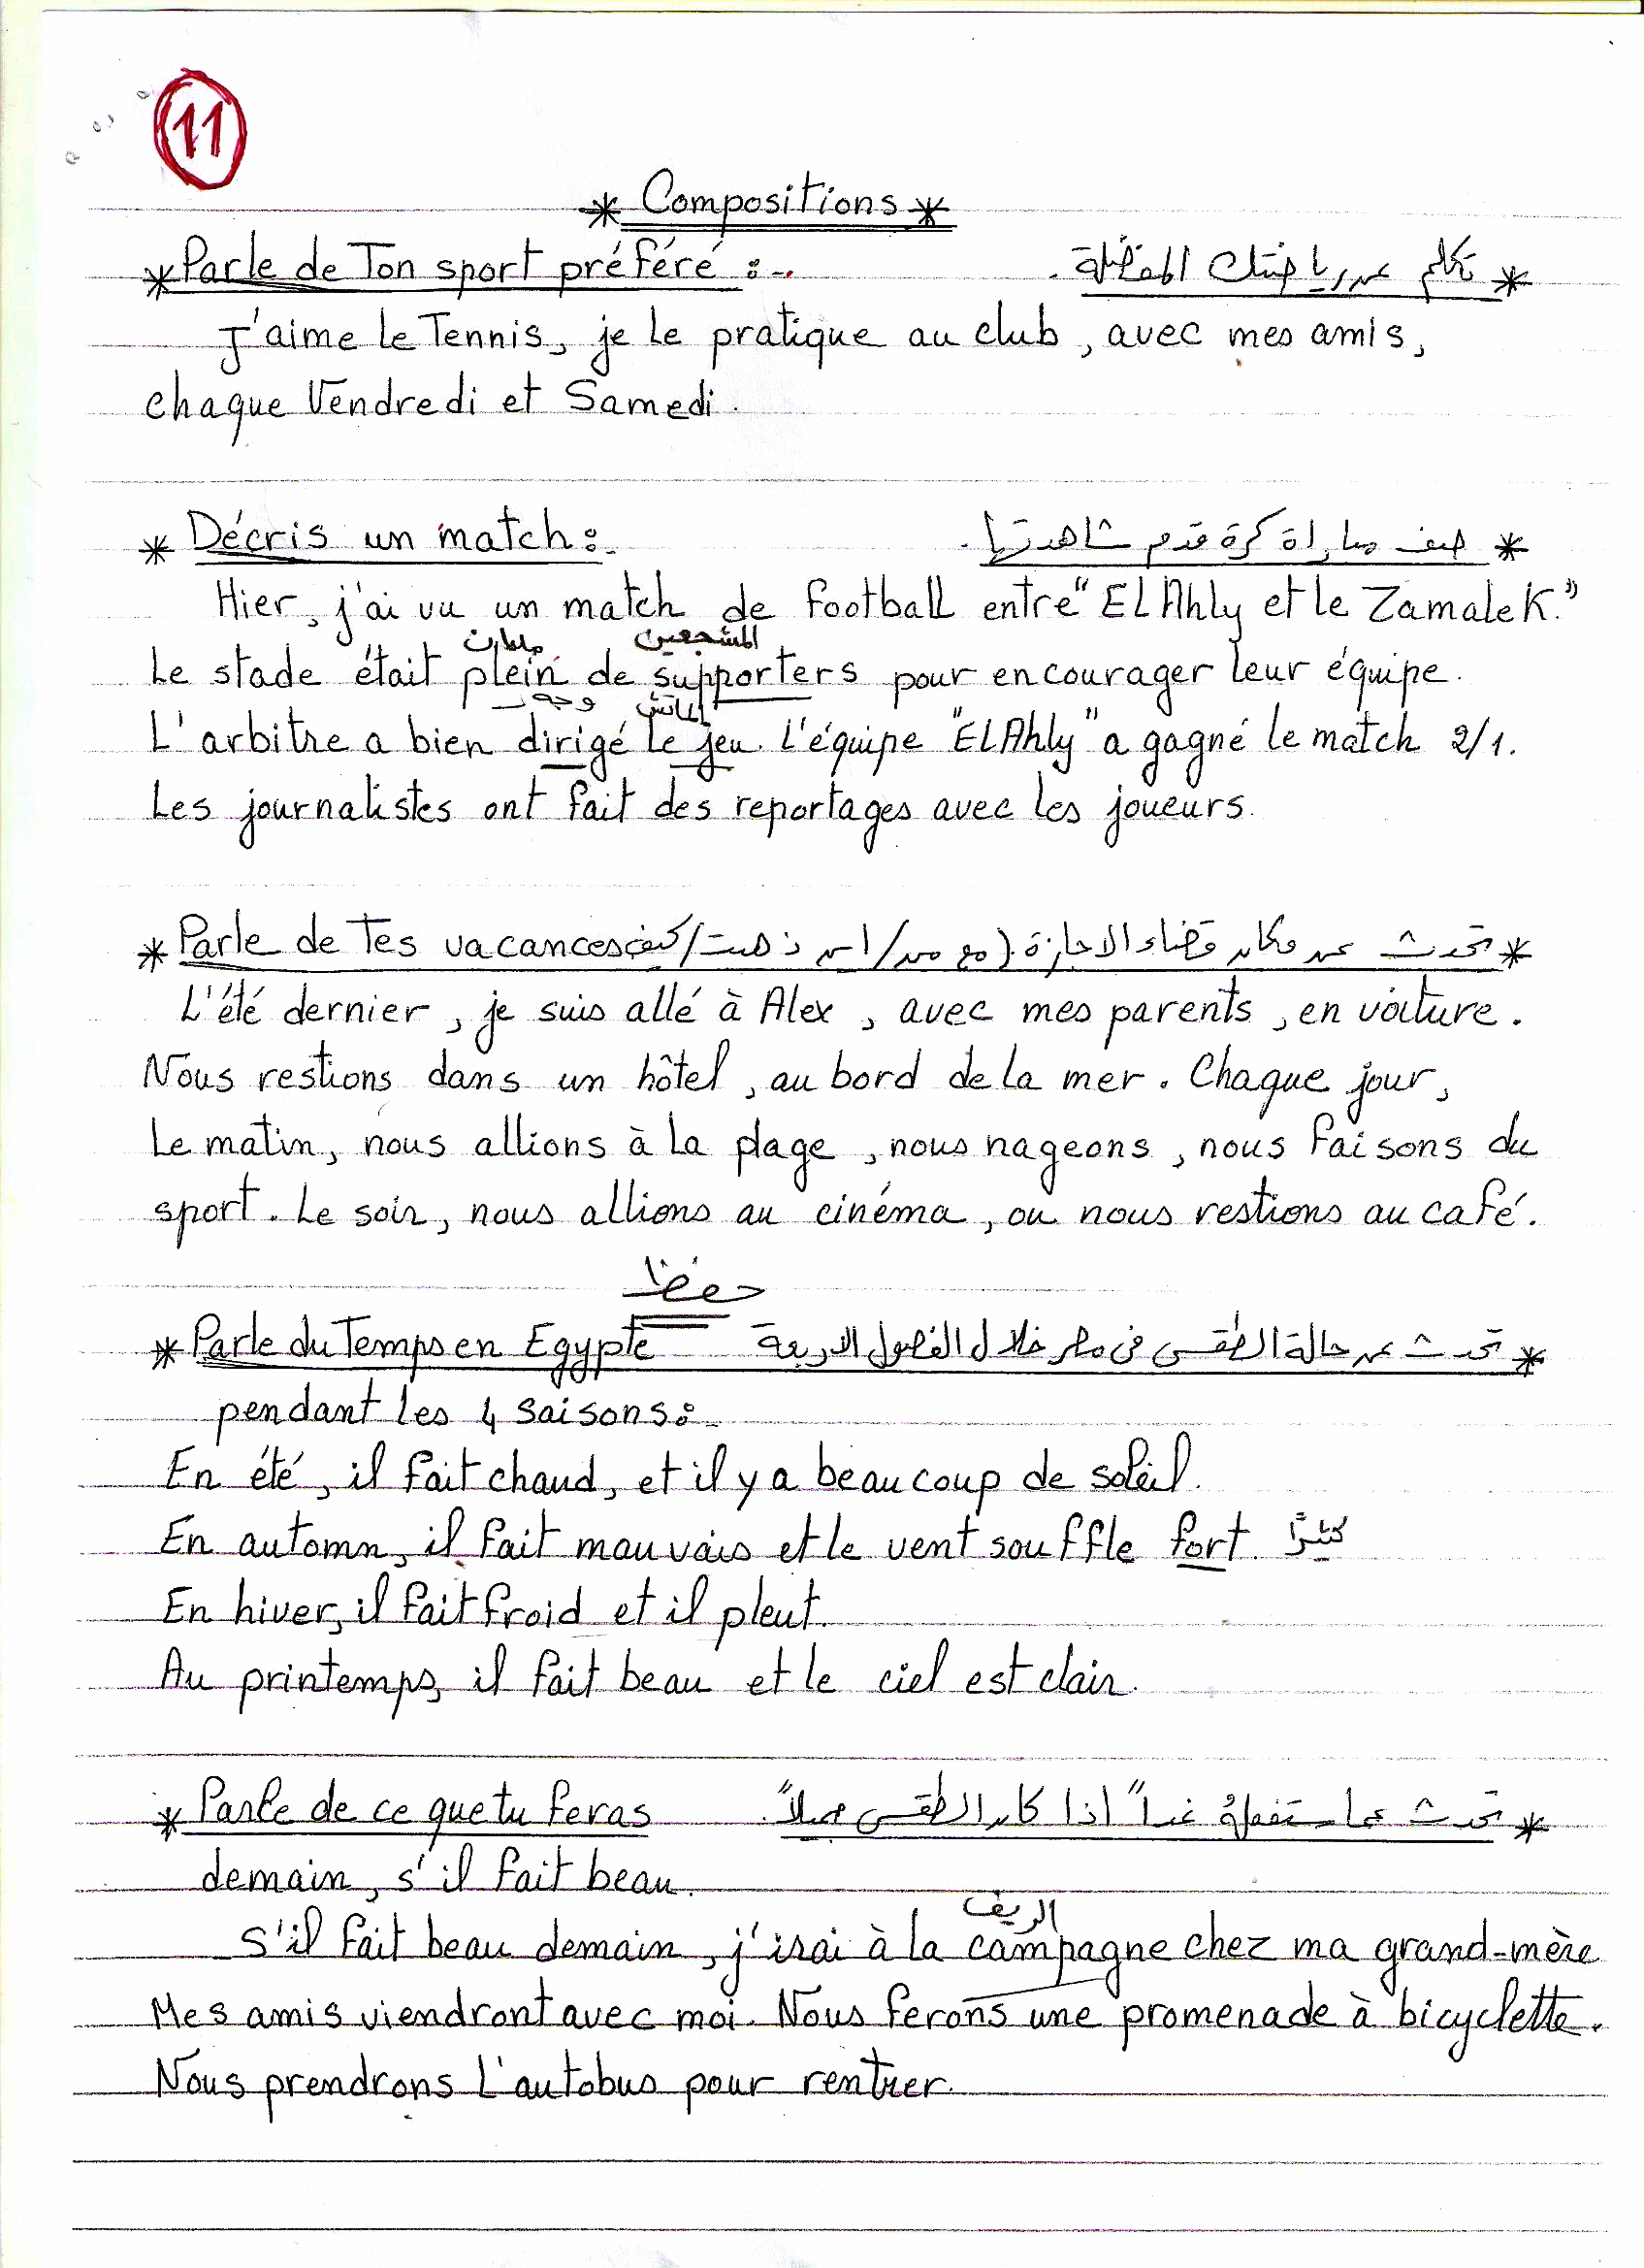 11
* Compositions *
* Parle de Ton sport préféré :-. * تكلم عن رياضتك المفضلة .
J'aime le Tennis, je le pratique au club, avec mes amis,
chaque Vendredi et Samedi.
* Décris un match :- * صف مباراة كرة قدم شاهدتها .
Hier, j'ai vu un match de football entre "EL Ahly et le Zamalek."
مليان المشجعين
Le stade était plein de supporters pour encourager leur équipe.
وجه الماتش
L'arbitre a bien dirigé le jeu. L'équipe "EL Ahly" a gagné le match 2/1.
Les journalistes ont fait des reportages avec les joueurs.
* Parle de Tes vacances * تحدث عن مكان قضاء الاجازة . (مع من / اين ذهبت / كيف
L'été dernier, je suis allé à Alex, avec mes parents, en voiture.
Nous restions dans un hôtel, au bord de la mer. Chaque jour,
Le matin, nous allions à la plage, nous nageons, nous faisons du
sport. Le soir, nous allions au cinéma, ou nous restions au café.
حفظ
* Parle du Temps en Egypte * تحدث عن حالة الطقس فى مصر خلال الفصول الاربعة
pendant les 4 saisons :-
En été, il fait chaud, et il y a beaucoup de soleil.
En automn, il fait mauvais et le vent souffle fort. كثيرًا
En hiver, il fait froid et il pleut.
Au printemps, il fait beau et le ciel est clair.
* Parle de ce que tu feras * تحدث عما ستفعله غداً اذا كان الطقس جميلاً .
demain, s'il fait beau.
الريف
S'il fait beau demain, j'irai à la campagne chez ma grand-mère
Mes amis viendront avec moi. Nous ferons une promenade à bicyclette.
Nous prendrons L'autobus pour rentrer.